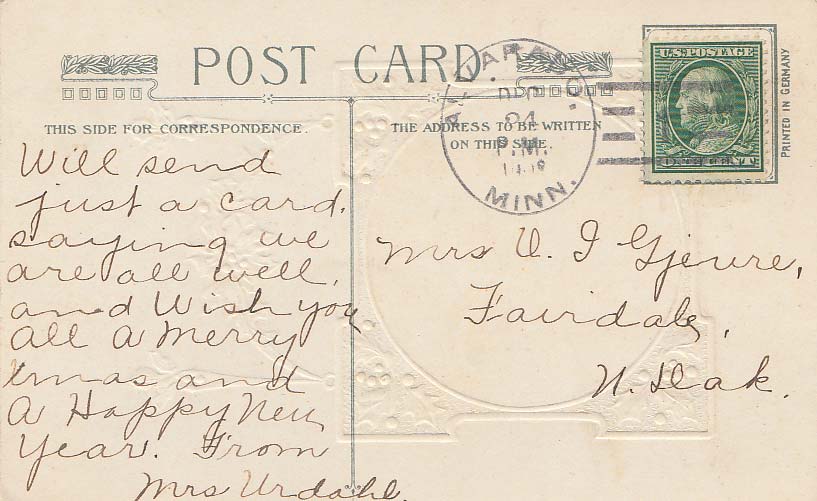 POST CARD
U.S. POSTAGE
ONE CENT
PRINTED IN GERMANY
ALVARADO
DEC
24
P.M.
MINN.
THIS SIDE FOR CORRESPONDENCE.
THE ADDRESS TO BE WRITTEN
ON THIS SIDE.
Will send
just a card.
saying we
are all well,
and Wish you
all a Merry
xmas and
A Happy New
Year. From
Mrs Urdahl.
Mrs O. I Gjevre,
Fairdale,
N. Dak.